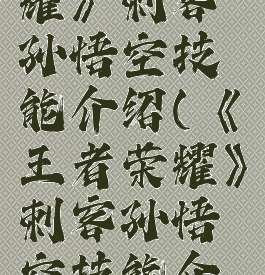 耀》刺客
孙悟空技
能介绍(《
王者荣耀》
刺客孙悟
空技能介